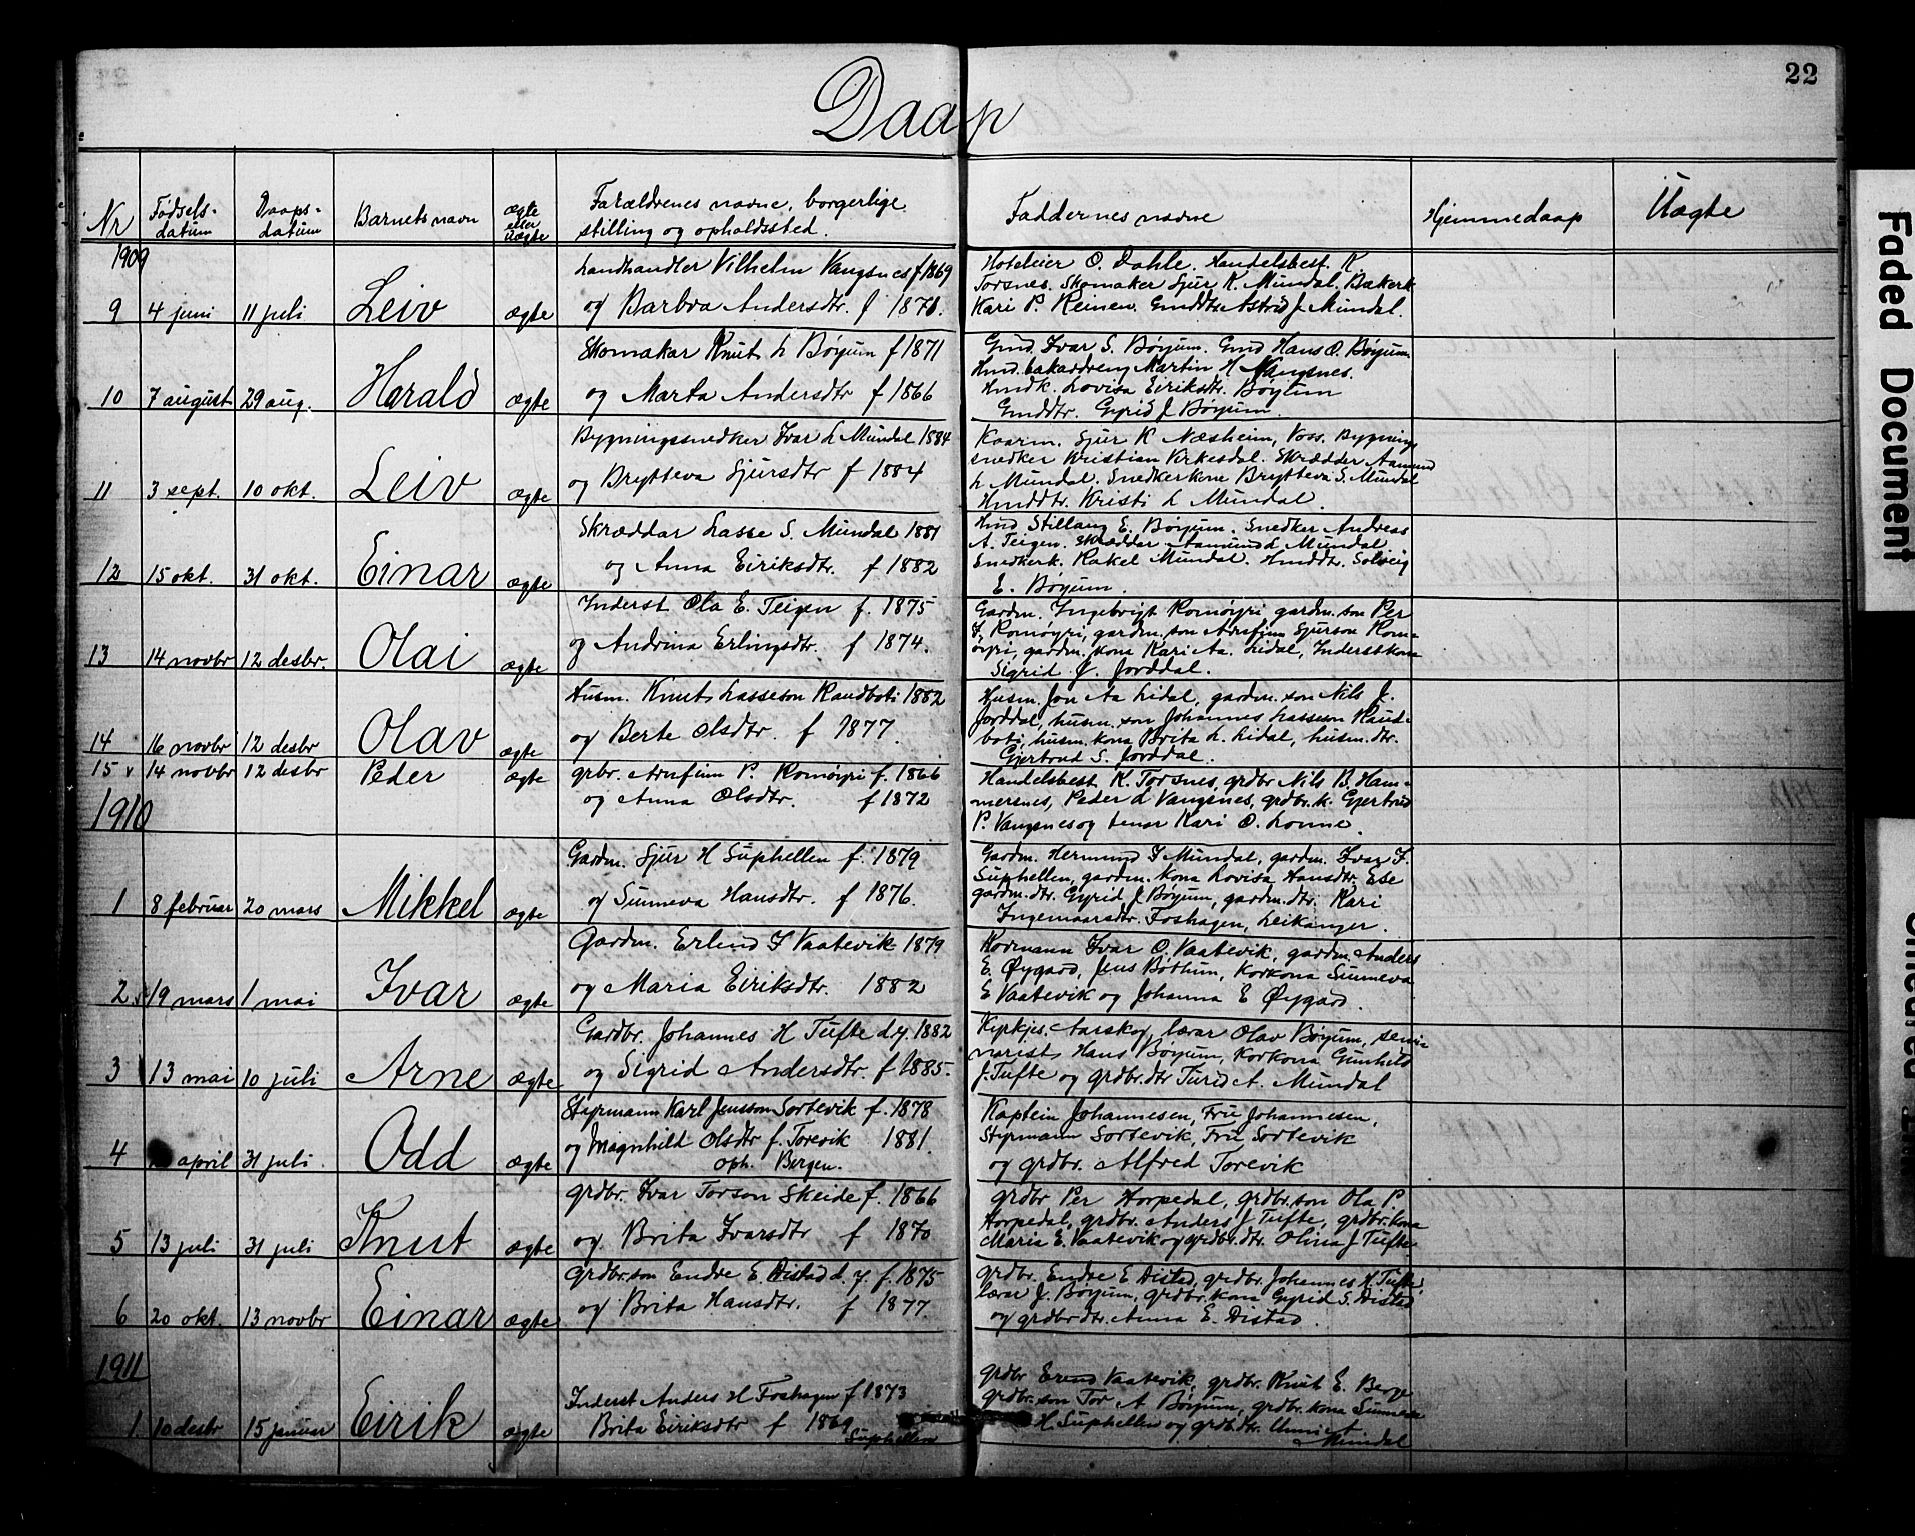 22
Daap
Nr
Fødsels-
datum
Daaps-
datum
Barnets navn
ægte
eller
uægte
Forældrenes navne, borgerlige
stilling og opholdssted.
Faddernes navne
Hjemmedaap
Uægte
1909
9 4 juni 11 juli Leiv ægte
Landhandler Vilhelm Vangsnes f 1869
og Barbra Andersdtr. f 1870.
Hoteleier O. Dahle. Handelsbest. K.
Torsnes. Skomaker Sjur K. Mundal. Bakerk
Kari P. Reinen. Gmddtr Astrid J. Mundal.
10 7 august 29 aug. Harald ægte
Skomakar Knut L Bøyum f 1871
og Marta Andersdtr f 1866
Gmd. Ivar S. Bøyum. Gmd Hans O. Bøyum
Hmd. bakardreng Martin H Vangsnes.
Hmdk. Lovisa Eiriksdtr. Bøyum
Gmddtr. Gyrid J Bøyum.
11 3 sept. 10 okt. Leiv ægte
Bygningssnedker Ivar L Mundal 1884
og Brytteva Sjursdtr f 1884
Kaarm. Sjur K Næsheim, Voss. Bygning
snedker Kristian Kirkedal. Skrædder Aamund
L Mundal. Snedkerkone Brytteva S. Mundal
Hmddtr. Kristi L Mundal.
12 15 okt. 31 okt. Einar ægte
Skræddar Lasse S. Mundal 1881
og Anna Eiriksdtr. f 1882
Hmd Stillaug E. Bøyum. Snedker Andreas
A. Teigen. Skræddar Aamund L Mundal
Snedkerk. Rakel Mundal. Hmddtr. Solveig
E. Bøyum.
13 14 novbr 12 desbr. Olai ægte
Inderst Ola E. Teigen f. 1875
og Andrina Erlingsdtr. f 1874.
Gardm. Ingebrigt Romøyri gardm. son Per
I. Romøyri, gardm. son Arnfinn Sjurson Rom-
øyri, gardm. kona Kari Aa. Lidal, Inderstkona
Sigrid Ø. Jorddal.
14 16 novbr 12 desbr Olav ægte
Husm. Knut Lasseson Raudboti 1882
og Berte Olsdtr. f 1877.
Husm. Jon Aa Lidal, gardm. son Nils J.
Jorddal, husm. son Johannes Lasseson Raud-
boti, husm. kona Brita L. Lidal, husm. dtr.
Gjertrud S. Jorddal.
15 v 14 novbr 12 desbr Peder ægte
grbr. Arnfinn P. Romøyri f. 1866
og Anna Olsdtr. f 1872
Handelsbest. K. Torsnes, grdbr Nils B. Ham-
mersnes, Peder L Vangsnes, grdbr.k. Gjertrud
P. Vangsnes og tenar Kari O. Lonne.
1910
1 8 februar 20 mars Mikkel ægte
Gardm. Sjur H Suphellen f. 1879
og Sunneva Hansdtr. f 1876.
Gardm. Hermund I Mundal, gardm. Ivar I.
Suphellen, gardm. kona Lovisa Hansdtr. Ese
gardm. dtr. Gyrid J Bøyum, gardm. dtr. Kari
Ingemaarsdtr. Foshagen, Leikanger.
2 19 mars 1 mai Ivar ægte
Gardm. Erlend I Vaatevik 1879
og Maria Eiriksdtr. 1882
Kormann Ivar O. Vaatevik, gardm. Anders
E. Øygard, Jens Bøthum, Korkona Sunneva
E Vaatevik og Johanna E Øygard.
3 13 mai 10 juli Arne ægte
Gardbr. Johannes H Tufte d.y. 1882
og Sigrid Andersdtr. f 1885.
Kyrkjes. Aarskog, lærar Olav Bøyum, semi-
narist Hans Bøyum, Korkona Gunhild
J. Tufte og grdbr.dtr Turid A. Mundal
4 april 31 juli. Odd ægte
Styrmann Karl Jensson Sortevik f. 1878
og Magnhild Olsdtr f. Torevik 1881.
oph. Bergen.
Kaptein Johannesen, Fru Johannesen,
Styrmann Sortevik, Fru Sortevik
og grdbr. Alfred Torevik
5 13 juli 31 juli Knut ægte
grdbr. Ivar Torson Skeide f. 1866
og Brita Ivarsdtr f 1870
grdbr Per Horpedal, grdbr. son Ola P.
Horpedal, grdbr. Anders J Tufte, grdbr. kona
Maria E. Vaatevik og grdbr. dtr. Olina J Tufte
6 20 okt. 13 novbr Einar ægte
grdbr. son Endre E. Distad d. y. f. 1875
og Brita Hansdtr. f 1877.
grdbr. Endre E Distad, grdbr. Johannes H. Tufte,
lærar J. Bøyum, grdbr. kona Gyrid S. Distad
og grdbrdtr. Anna E. Distad.
1911
1 10 desbr 15 januar Eirik ægte
Inderst Anders H Foshagen f 1873
Brita Eiriksdtr f 1869
Suphellen
grdbr Erend Vaatevik, grdbr. Knut E. Berge
grdbr. son Tor A Bøyum, grdbr. kona Sunneva
H. Suphellen og grdb.dtr. Unni
Mundal
Faded Document